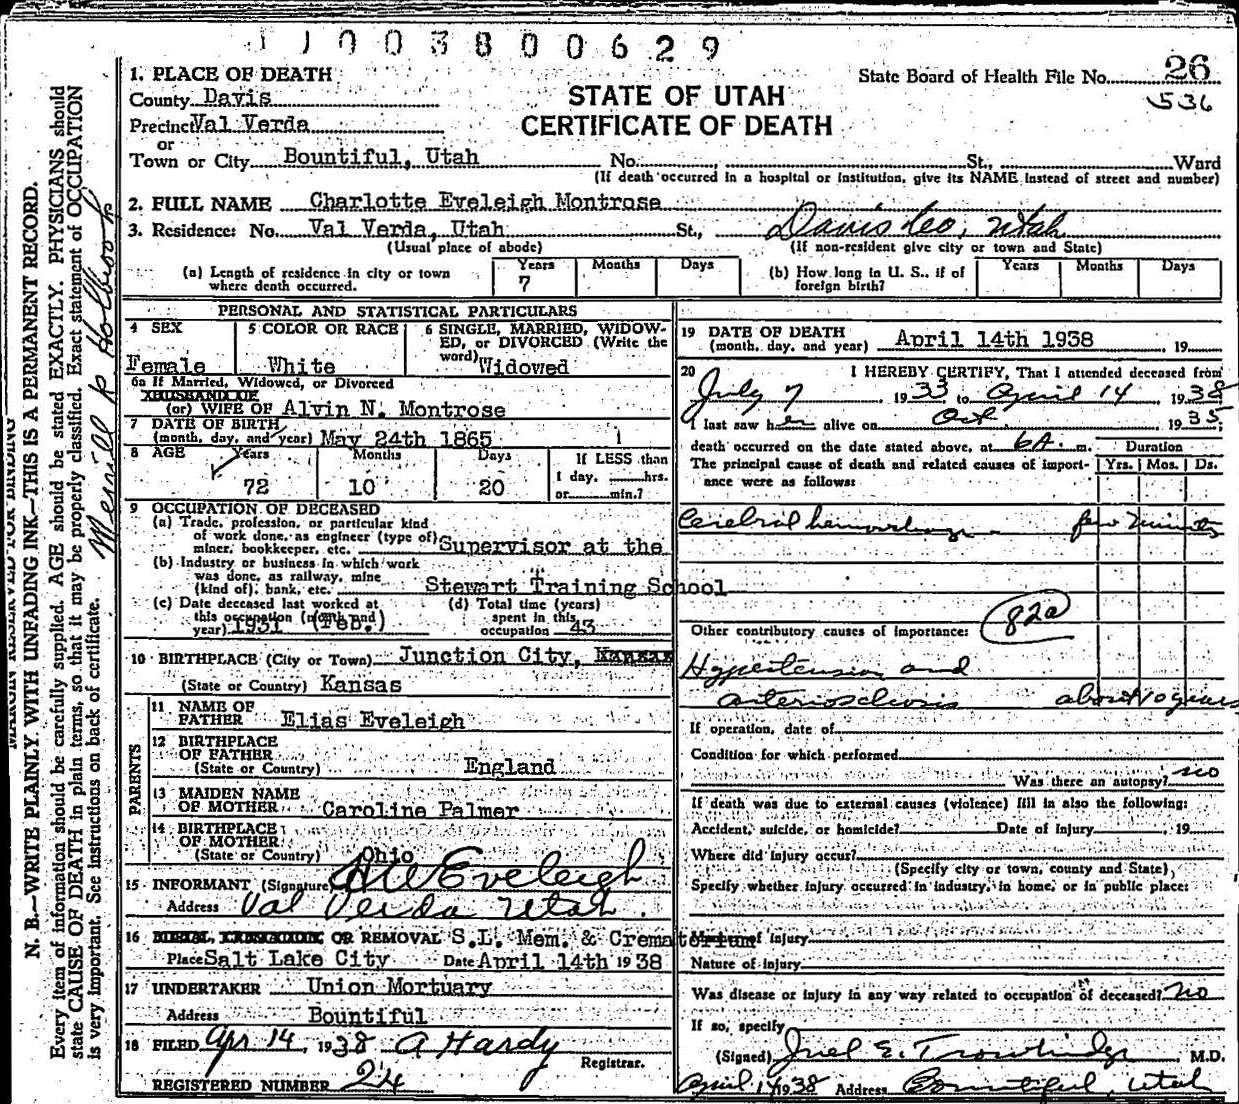 1 1 0 0 3 8 0 0 6 2 9
1. PLACE OF DEATH
County Davis
Precinct Val Verda
or
Town or City Bountiful, Utah No. St., Ward
(If death occurred in a hospital or institution, give its NAME instead of street and number)
STATE OF UTAH
CERTIFICATE OF DEATH
State Board of Health File No. 26
536
2. FULL NAME Charlotte Eveleigh Montrose
3. Residence: No. Val Verda, Utah St., Davis Co, Utah
(Usual place of abode) (If non-resident give city or town and State)
(a) Length of residence in city or town where death occurred. Years 7 Months Days
(b) How long in U. S., if of foreign birth? Years Months Days
PERSONAL AND STATISTICAL PARTICULARS
4 SEX Female
5 COLOR OR RACE White
6 SINGLE, MARRIED, WIDOWED, or DIVORCED (Write the word) Widowed
6a If Married, Widowed, or Divorced
HUSBAND OF
(or) WIFE OF Alvin N. Montrose
7 DATE OF BIRTH
(month, day, and year) May 24th 1865
8 AGE Years 72 Months 10 Days 20
If LESS than 1 day, hrs. or min.?
9 OCCUPATION OF DECEASED
(a) Trade, profession, or particular kind of work done, as engineer (type of), miner, bookkeeper, etc. Supervisor at the
(b) Industry or business in which work was done, as railway, mine (kind of), bank, etc. Stewart Training School
(c) Date deceased last worked at this occupation (month and year) 1931 (Feb.)
(d) Total time (years) spent in this occupation 43
10 BIRTHPLACE (City or Town) Junction City, Kansas
(State or Country) Kansas
PARENTS
11 NAME OF FATHER Elias Eveleigh
12 BIRTHPLACE OF FATHER
(State or Country) England
13 MAIDEN NAME OF MOTHER Caroline Palmer
14 BIRTHPLACE OF MOTHER
(State or Country) Ohio
15 INFORMANT (Signature) Eveleigh
Address Val Verda Utah.
16 BURIAL, CREMATION OR REMOVAL S.L. Mem. & Crematorium
Place Salt Lake City Date April 14th 1938
17 UNDERTAKER Union Mortuary
Address Bountiful
18 FILED Apr 14, 1938 A Hardy
Registrar.
REGISTERED NUMBER 24
19 DATE OF DEATH
(month, day, and year) April 14th 1938, 19
20 I HEREBY CERTIFY, That I attended deceased from
July 7 1933 to April 14 1938
I last saw her alive on Oct 1935;
death occurred on the date stated above, at 6A. m.
Duration
Yrs. Mos. Ds.
The principal cause of death and related causes of importance were as follows:
Cerebral hemorrhage few minutes
82a
Other contributory causes of importance:
Hypertension and
arteriosclerosis about 10 years
If operation, date of
Condition for which performed
Was there an autopsy? no
If death was due to external causes (violence) fill in also the following:
Accident, suicide, or homicide? Date of injury, 19
Where did injury occur?
(Specify city or town, county and State)
Specify whether injury occurred in industry, in home, or in public place:
Manner of injury
Nature of injury
Was disease or injury in any way related to occupation of deceased? no
If so, specify
(Signed) Joel E. Trowbridge, M.D.
April 14 1938 Address Bountiful, Utah
MARGIN RESERVED FOR BINDING
N. B.—WRITE PLAINLY WITH UNFADING INK—THIS IS A PERMANENT RECORD.
Every item of information should be carefully supplied. AGE should be stated EXACTLY. PHYSICIANS should
state CAUSE OF DEATH in plain terms, so that it may be properly classified. Exact statement of OCCUPATION
is very important. See instructions on back of certificate.
Merrill Holbrook